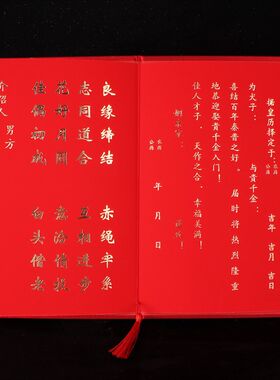 据皇历择定于
农历
公历
吉年 吉月 吉日
为犬子:
与贵千金:
喜结百年秦晋之好。届时将热烈隆重
地恭迎娶贵千金入门!
佳人才子,天作之合,幸福美满!
农历
公历
年 月 日
良缘缔结 赤绳牢系
志同道合 互相进步
花好月圆 意洽情投
佳偶初成 白头偕老
介绍人 男方